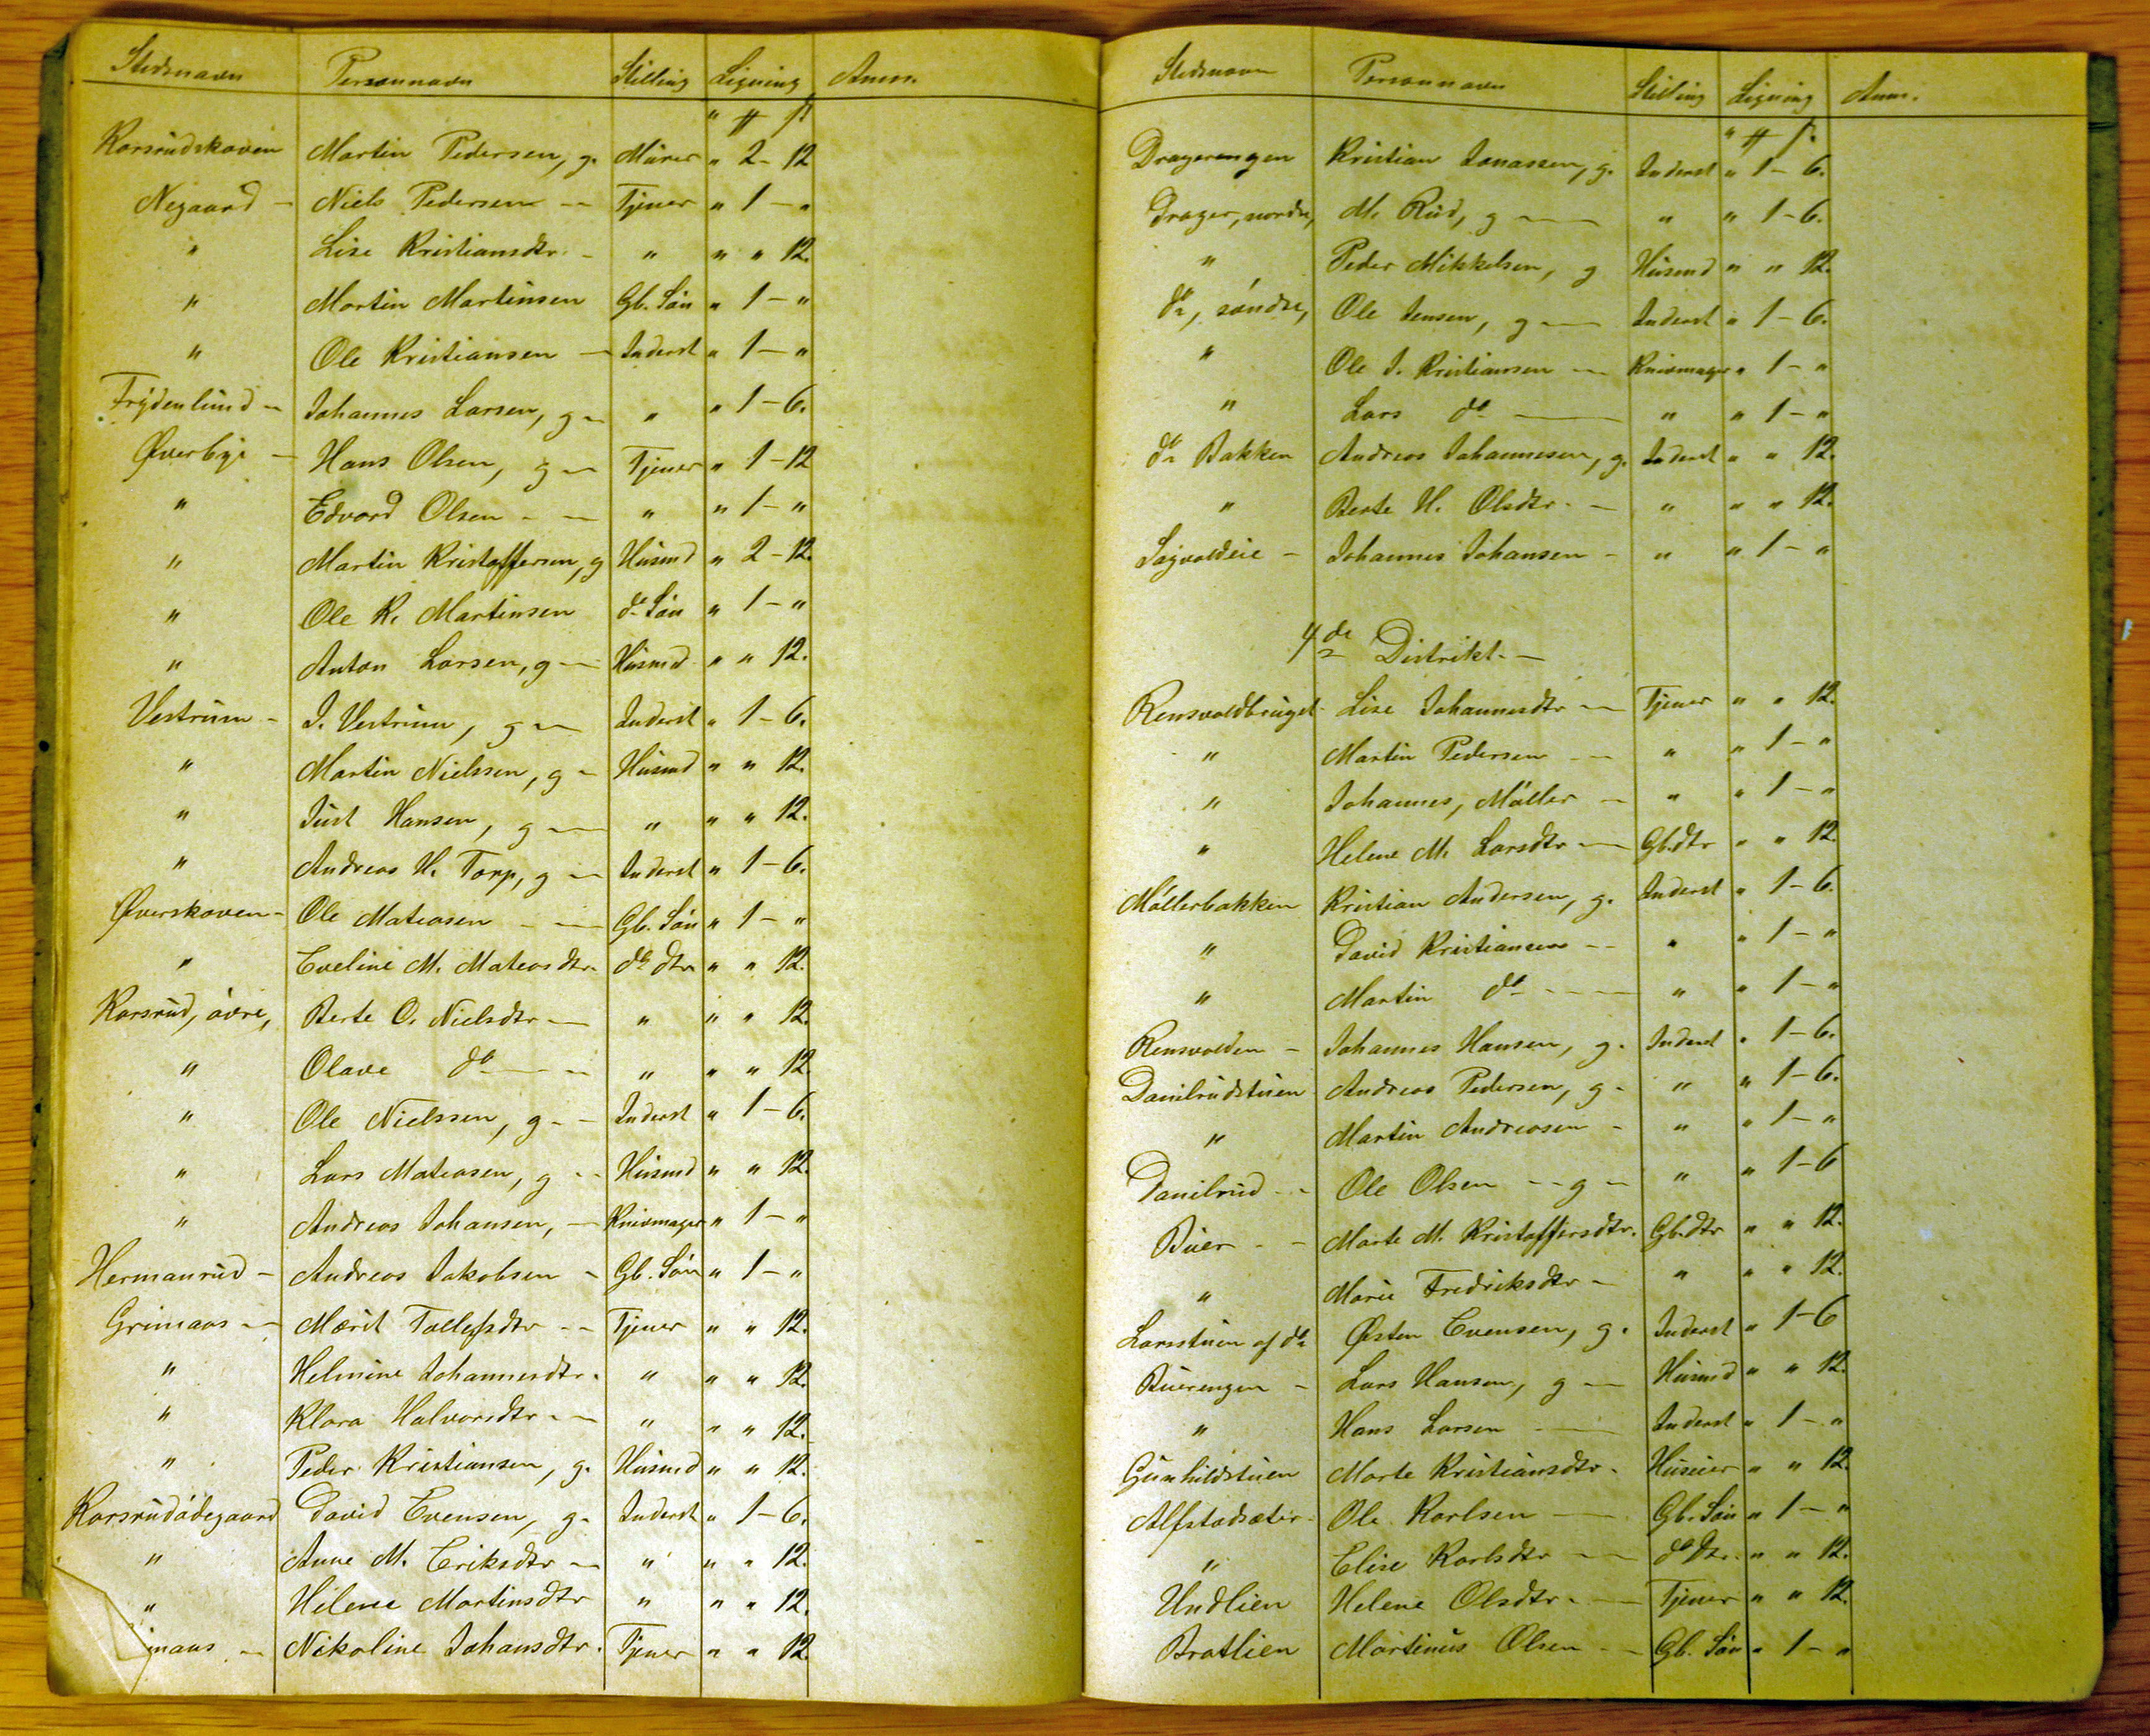 Stedsnavn Personnavn Stilling Ligning Anm.
" # ß
Korsrudskoven Martin Pedersen, g. Murer " 2 - 12
Negaard - Niels Pedersen - Tjener " 1 - "
" Lise Kristiansdtr. - " " " 12.
" Martin Martinsen Gb. Søn " 1 - "
" Ole Kristiansen - Inderst " 1 - "
Frydenlund - Johannes Larsen, g - " " 1 - 6.
Øverbye - Hans Olsen, g - Tjener " 1 - 12
" Edvard Olsen - - " " 1 - "
" Martin Kristoffersen, g Husmd " 2 - 12.
" Ole K. Martinsen do Søn " 1 - "
" Anton Larsen, g - Husmd " " 12.
Vestrum - J. Vestrum, g - Inderst " 1 - 6.
" Martin Nielssen, g - Husmd " " 12.
" Just Hansen, g - " " " 12.
" Andreas H. Torp, g - Inderst " 1 - 6.
Øverskoven - Ole Mateasen - - Gb. Søn " 1 - "
" Eveline M. Mateasdtr. do dtr " " 12.
Korsrud, øvre, Berte O. Nielsdtr - " " " 12.
" Olave do - - " " " 12.
" Ole Nielssen, g. - Inderst " 1 - 6.
" Lars Mateasen, g - - Husmd " " 12.
" Andreas Johansen, - Knivmager " 1 - "
Hermanrud - Andreas Jakobsen - Gb. Søn " 1 - "
Grimaas - Mærit Tollefsdtr - - Tjener " " 12.
" Helmine Johannesdtr. " " " 12.
" Klara Halvorsdtr. - " " " 12.
" Peder Kristiansen, g. Husmd " " 12.
Korsrudødegaard David Evensen, g. Inderst " 1 - 6.
" Anne M. Eriksdtr - " " " 12.
" Helene Martinsdtr " " " 12.
imaas - Nikoline Johansdtr. Tjener " " 12.
Stedsnavn Personnavn Stilling Ligning Anm.
" # ß.
Dragerengen Kristian Jonassen, g. Inderst " 1 - 6.
Drager, nordre, M. Rud, g - " " 1 - 6.
" Peder Mikkelsen, g Husmd " " 12.
do, søndre, Ole Jensen, g - Inderst " 1 - 6.
" Ole J. Kristiansen - Knivmager " 1 - "
" Lars do - " " 1 - "
do Bakken Andreas Johannesen, g. Inderst " " 12.
" Berte H. Olsdtr. - " " " 12.
Sagvoldeie - Johannes Johansen - " " 1 - "
4de Distrikt. -
Rensvoldbruget. Lise Johannesdtr - Tjener " " 12.
" Martin Pedersen - - " " 1 - "
" Johannes, Møller - " " 1 - "
" Helene M. Larsdtr - Gb.dtr " " 12.
Møllerbakken Kristian Andersen, g. Inderst " 1 - 6.
" David Kristiansen - - " " 1 - "
" Martin do - - - " " 1 - "
Rensvolden - Johannes Hansen, g. Inderst " 1 - 6.
Danilrudstuen Andreas Pedersen, g - " " 1 - 6.
" Martin Andreasen - " " 1 - "
Danilrud - - Ole Olsen - - g - " " 1 - 6
Buer - - Marte M. Kristoffersdtr. Gb.dtr " " 12.
" Marie Fredriksdtr - " " " 12.
Larsstuen af do Østen Evensen, g. Inderst " 1 - 6
Buerengen - Lars Hansen, g - Husmd " " 12.
" Hans Larsen - Inderst " 1 - "
Gunhildstuen Marte Kristiansdtr. Huseier " " 12.
Alfstadsæter. Ole Karlsen - Gb. Søn " 1 - "
" Elise Karlsdtr - - do dtr. " " 12.
Undlien Helene Olsdtr. - Tjener " " 12.
Bratlien Martinus Olsen - - Gb. Søn " 1 - "